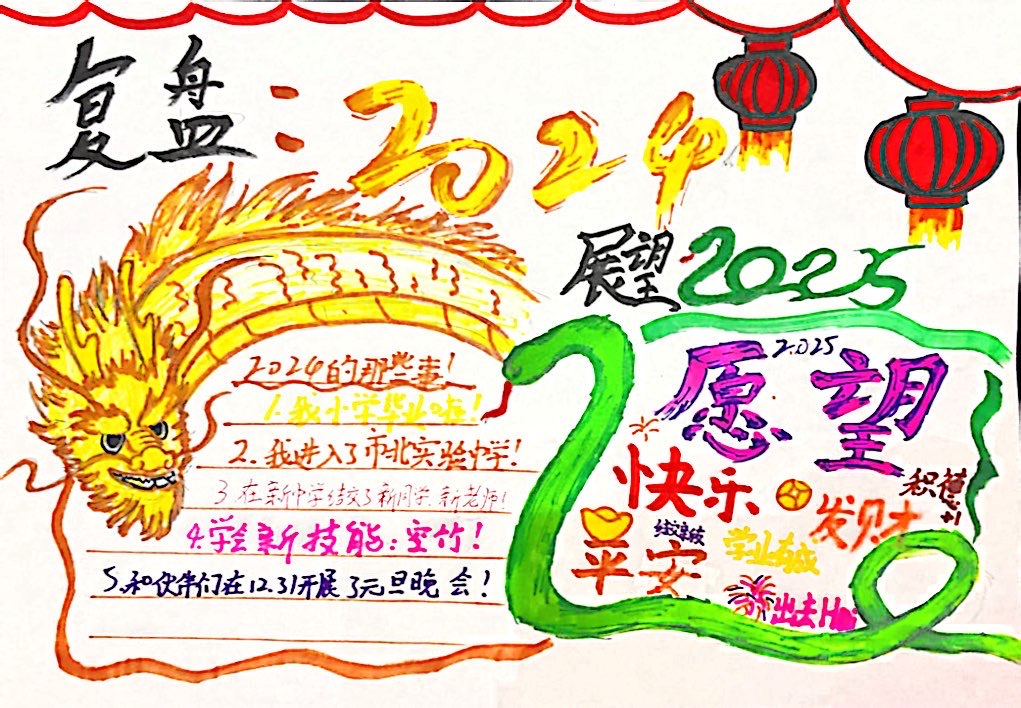 复盘：2024
展望2025
2024的那些事！
1.我小学毕业啦！
2.我进入了市北实验中学！
3.在新中学结交了新同学、新老师！
4.学会新技能：空竹！
5.和伙伴们在12.31开展了元旦晚会！
2025
愿望
快乐
发财
平安
学业有成
出去Hai